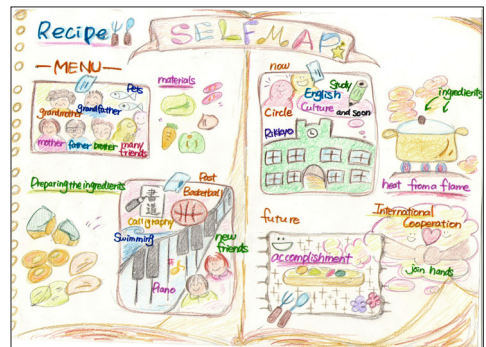 Recipe
SELF MAP
MENU
Pets
grandmother
grandfather
mother father brother many
friends
materials
Preparing the ingredients
Past
Basketball
書道
Calligraphy
Swimming
new
friends
Piano
now
Study
English
Circle
Culture and soon
Rikkyo
ingredients
heat from a flame
future
accomplishment
International
Cooperation
join hands